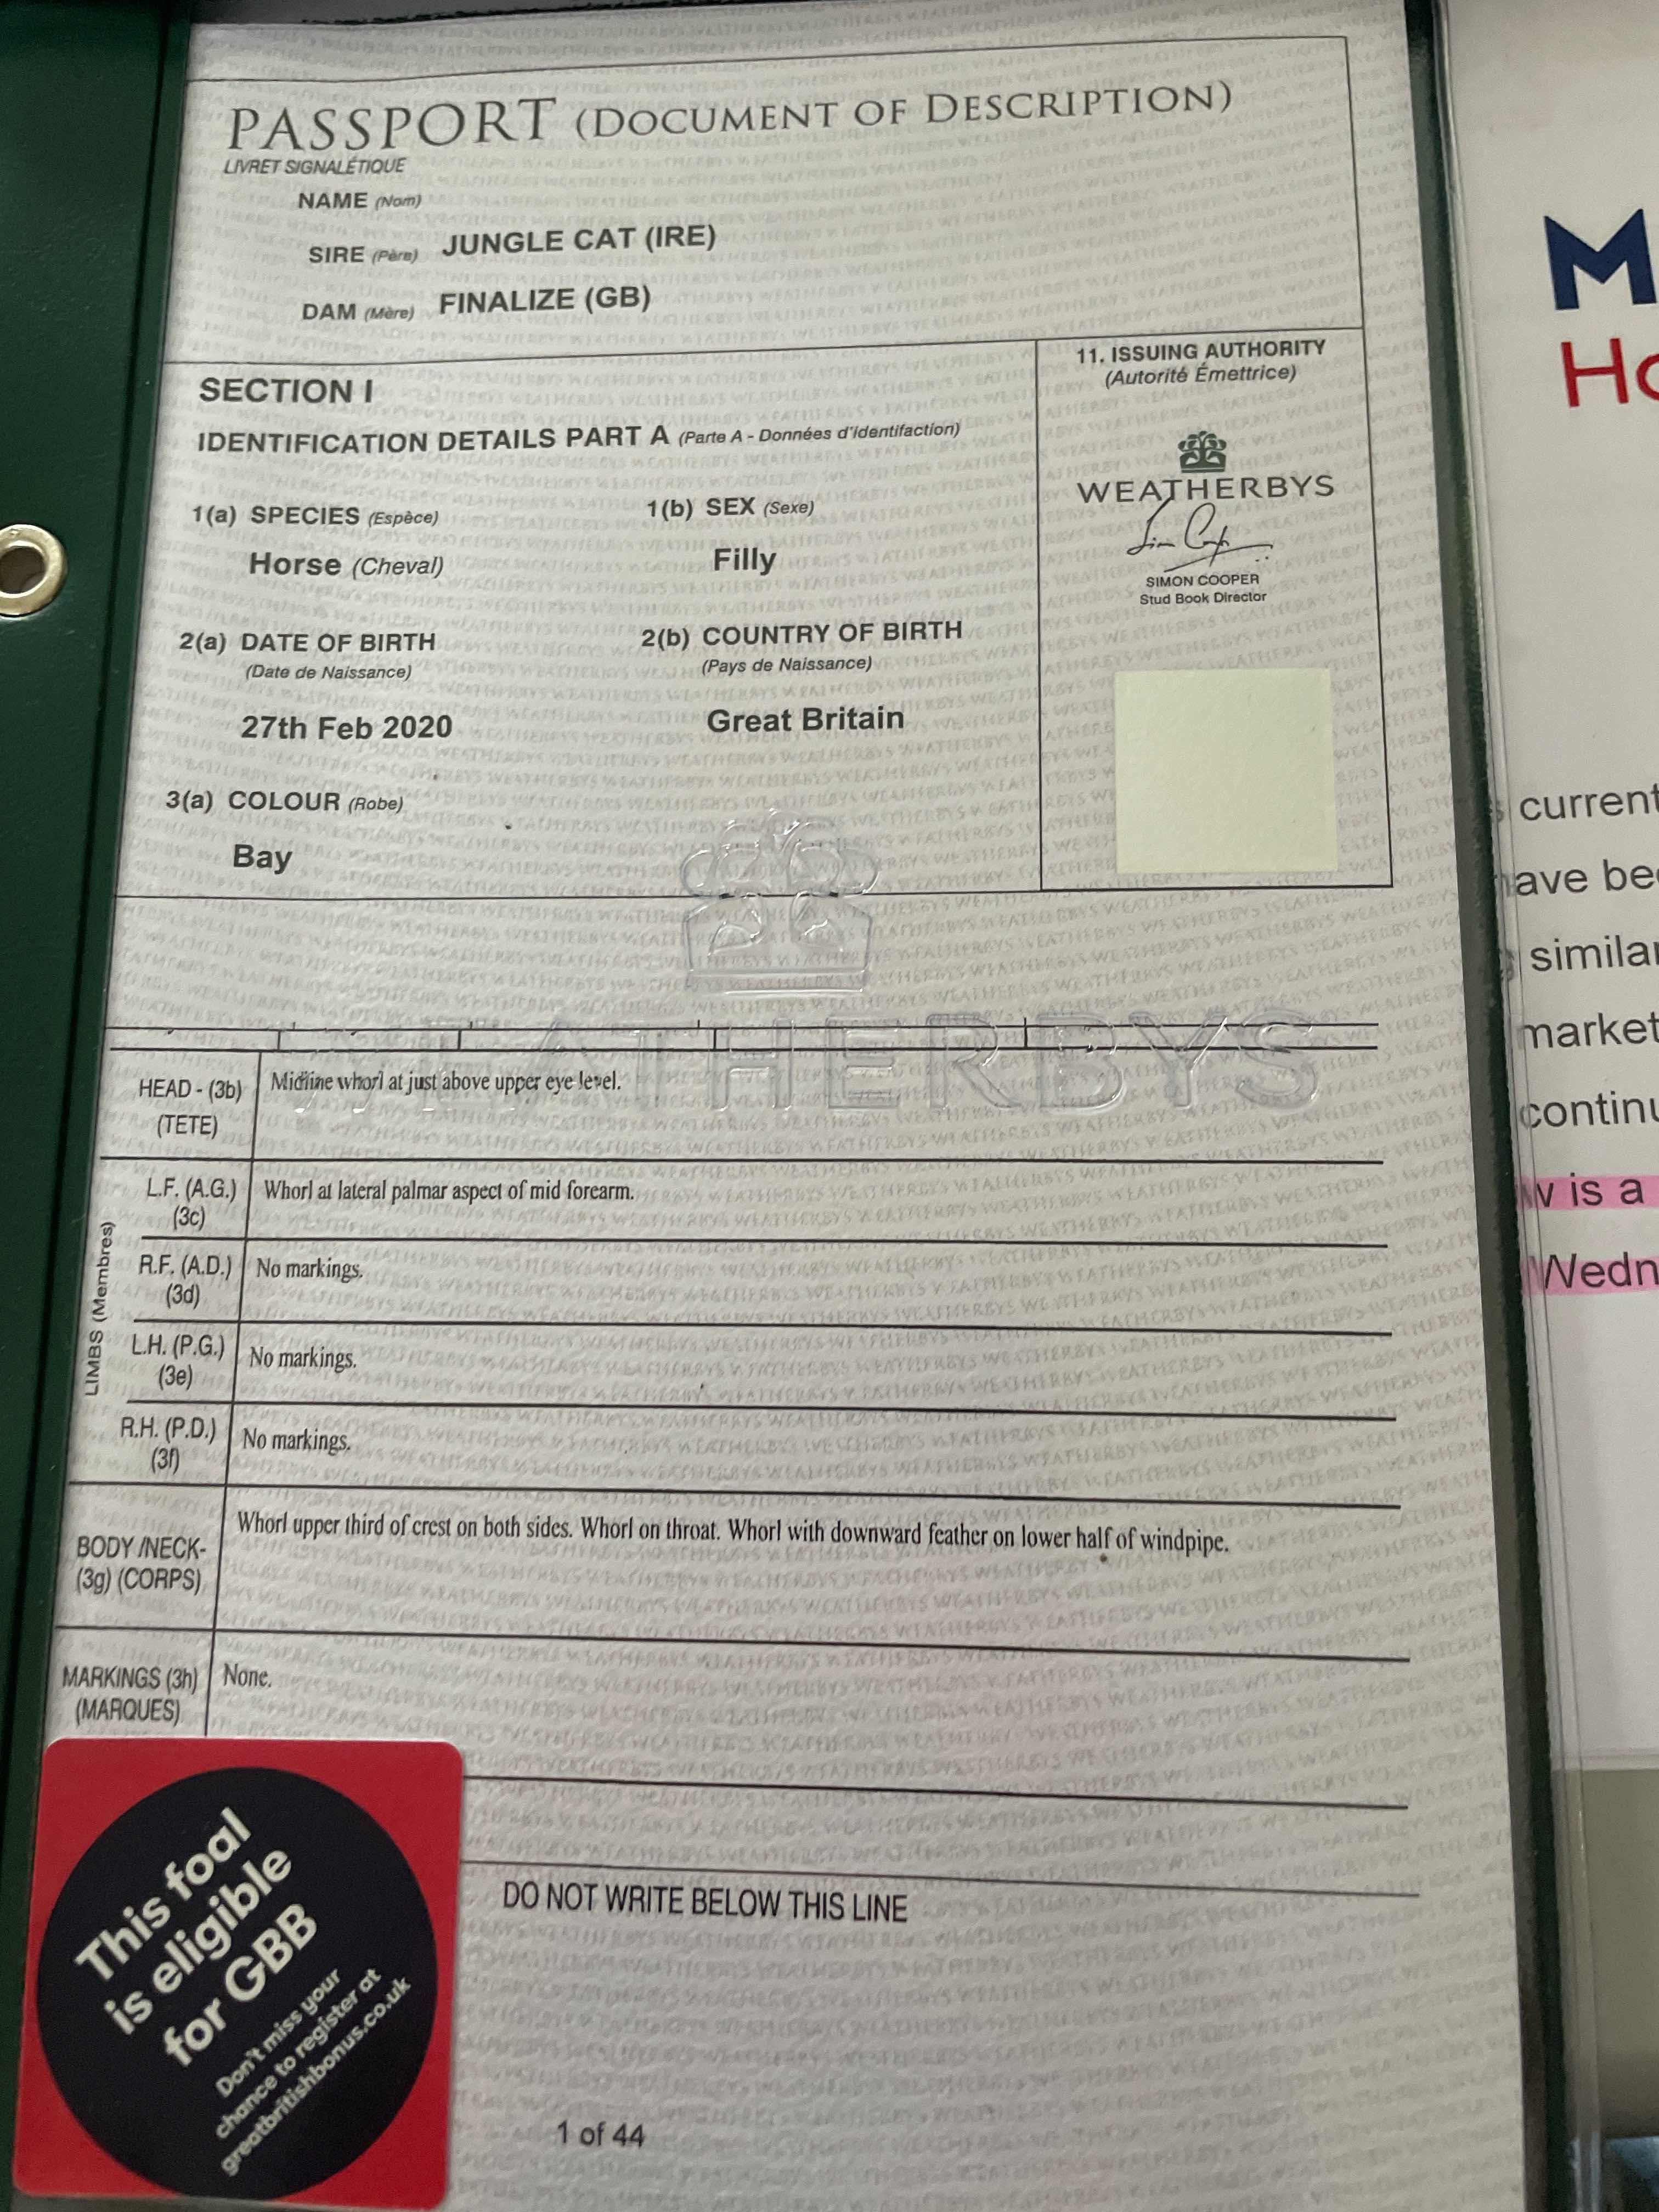 PASSPORT (DOCUMENT OF DESCRIPTION)
LIVRET SIGNALÉTIQUE
NAME (Nom)
SIRE (Père) JUNGLE CAT (IRE)
DAM (Mère) FINALIZE (GB)
SECTION I
IDENTIFICATION DETAILS PART A (Parte A - Données d'identifaction)
1(a) SPECIES (Espèce)
Horse (Cheval)
1(b) SEX (Sexe)
Filly
2(a) DATE OF BIRTH
(Date de Naissance)
27th Feb 2020
2(b) COUNTRY OF BIRTH
(Pays de Naissance)
Great Britain
3(a) COLOUR (Robe)
Bay
11. ISSUING AUTHORITY
(Autorité Émettrice)
WEATHERBYS
SIMON COOPER
Stud Book Director
WEATHERBYS
HEAD - (3b)
(TETE)
Midline whorl at just above upper eye level.
LIMBS (Membres)
L.F. (A.G.)
(3c)
Whorl at lateral palmar aspect of mid forearm.
R.F. (A.D.)
(3d)
No markings.
L.H. (P.G.)
(3e)
No markings.
R.H. (P.D.)
(3f)
No markings.
BODY /NECK-
(3g) (CORPS)
Whorl upper third of crest on both sides. Whorl on throat. Whorl with downward feather on lower half of windpipe.
MARKINGS (3h)
(MARQUES)
None.
DO NOT WRITE BELOW THIS LINE
1 of 44
This foal
is eligible
for GBB
Don't miss your
chance to register at
greatbritishbonus.co.uk
M
Ho
current
ave be
similar
market
continu
w is a
Wedn